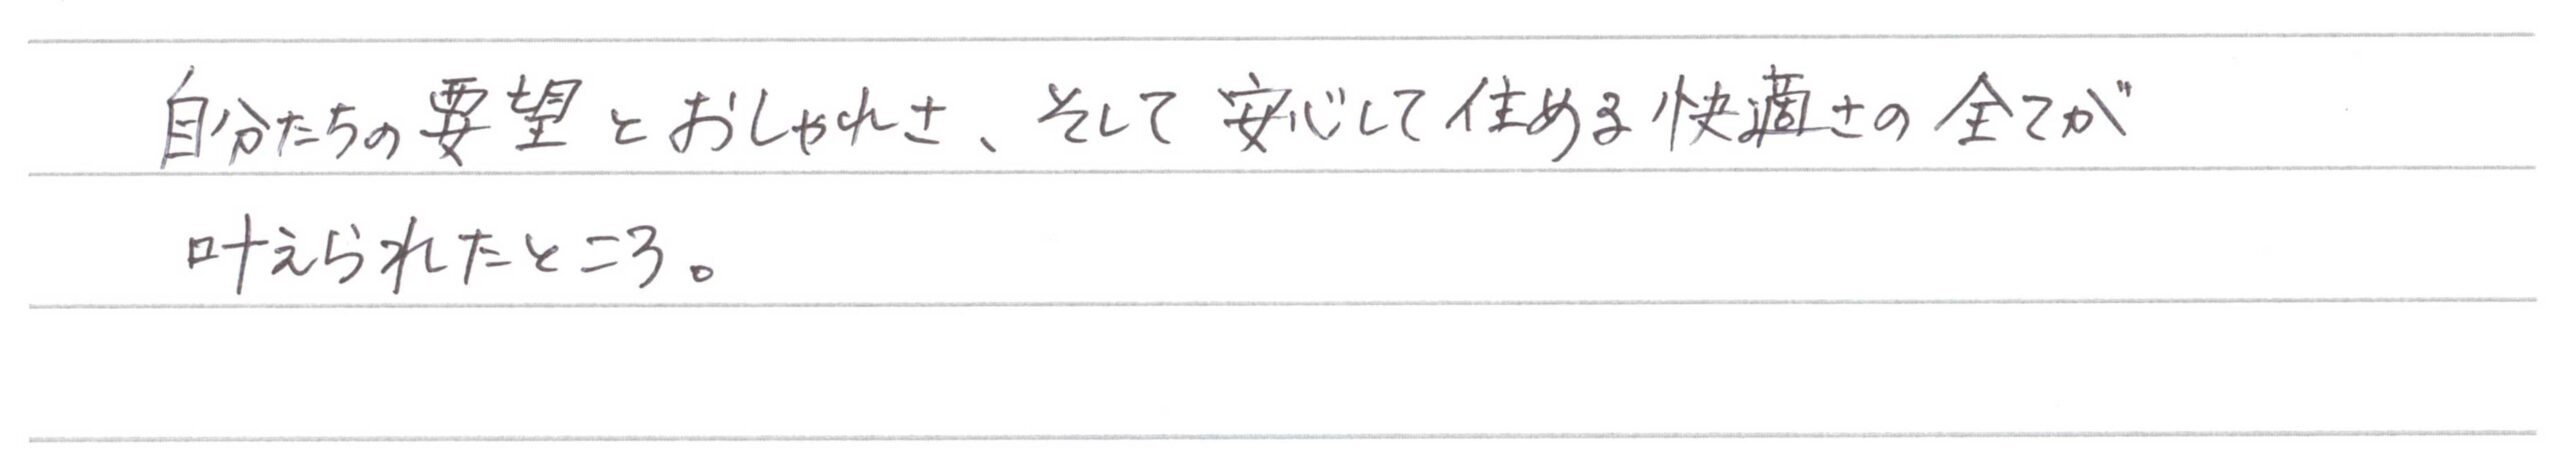 自分たちの要望とおしゃれさ、そして安心して住める快適さの全てが
叶えられたところ。